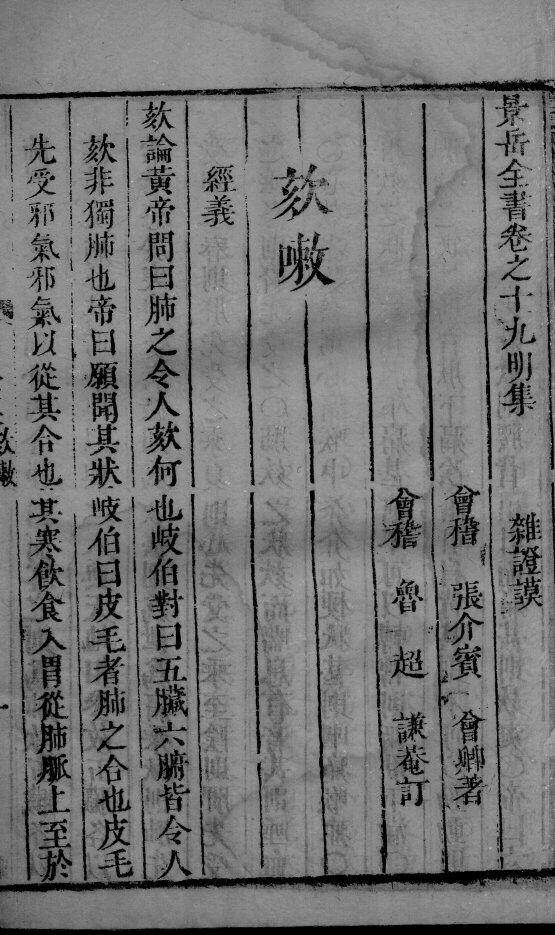 景岳全書卷之十九明集
雜證謨
會稽 張介賓 會卿著
會稽 魯超 謙菴訂
欬嗽
經義
欬論黃帝問曰肺之令人欬何也岐伯對曰五臟六腑皆令人
欬非獨肺也帝曰願聞其狀岐伯曰皮毛者肺之合也皮毛
先受邪氣邪氣以從其合也其寒飲食入胃從肺脈上至於